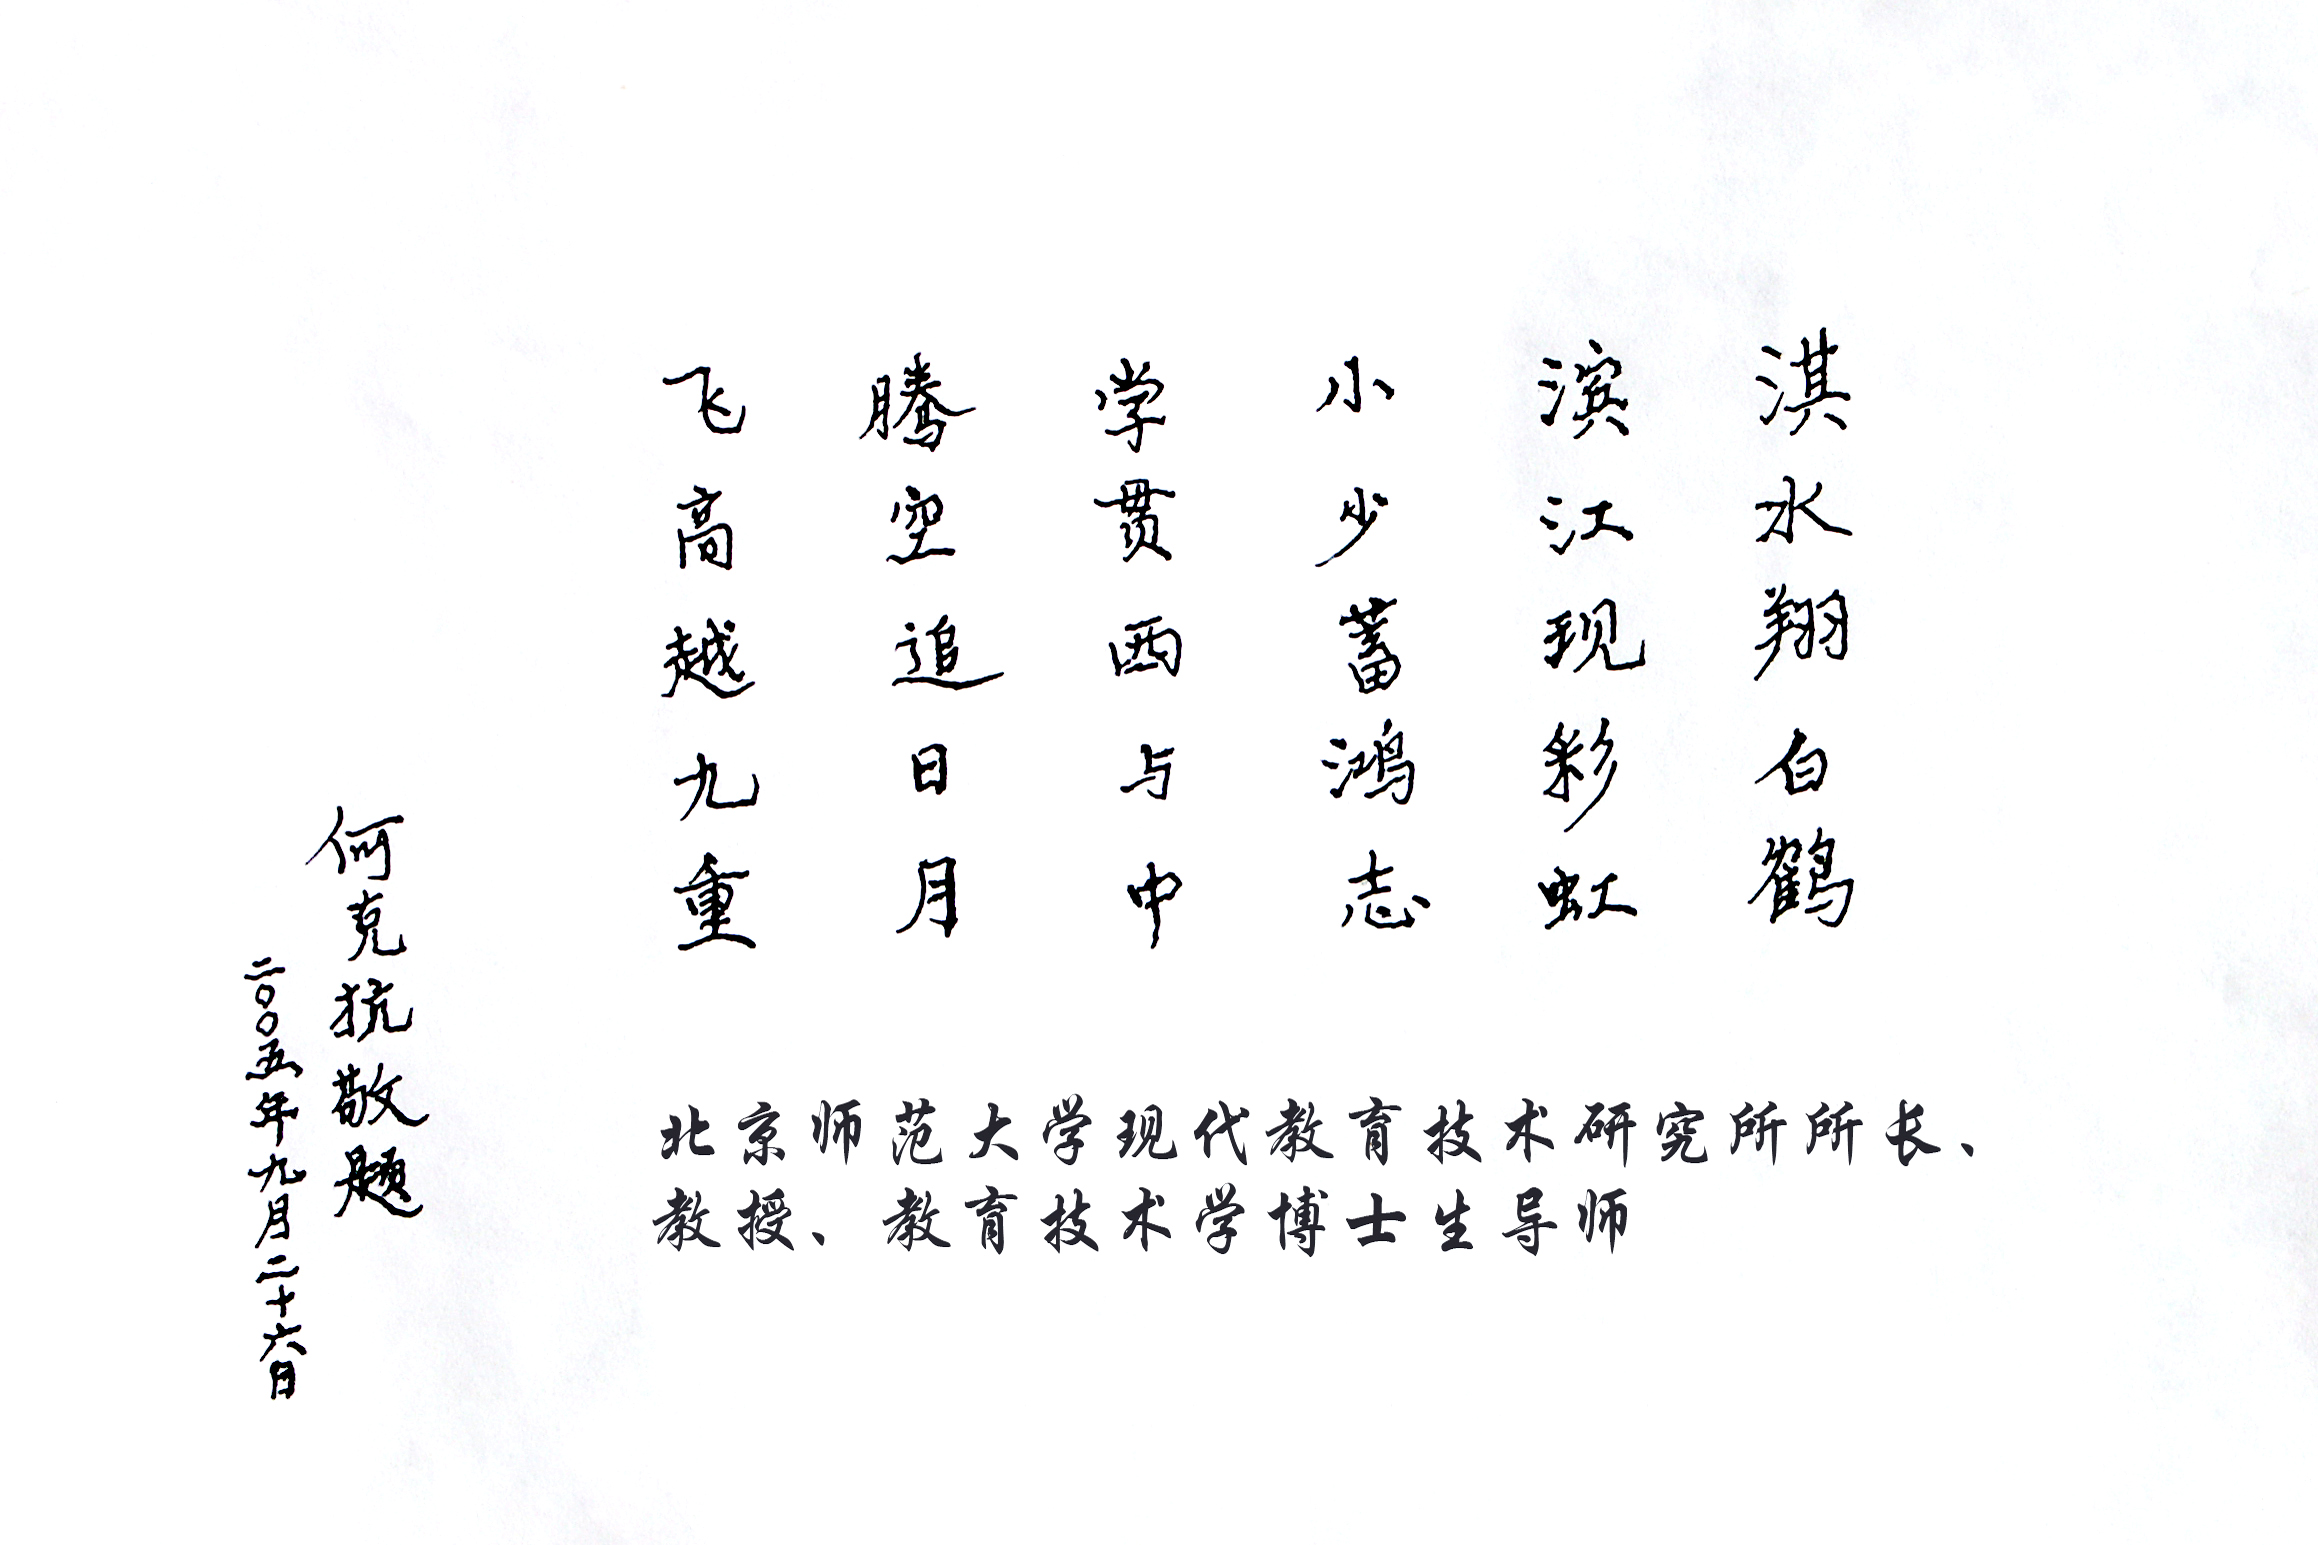 淇水翔白鹤
滨江现彩虹
小少蓄鸿志
学贯西与中
腾空追日月
飞高越九重
何克抗敬题
二〇〇五年九月二十六日
北京师范大学现代教育技术研究所所长、
教授、教育技术学博士生导师